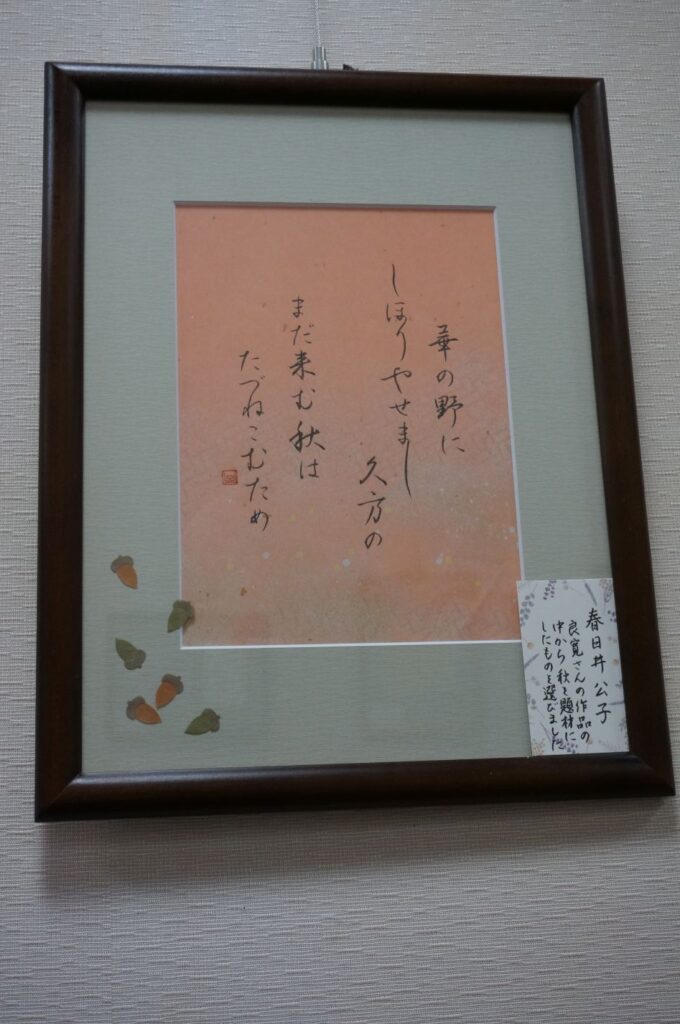 華の野に
しほりやせまし
久方の
まだ来む秋は
たづねこむため
春日井 公子
良寛さんの作品の
中から秋を題材に
したものを選びました